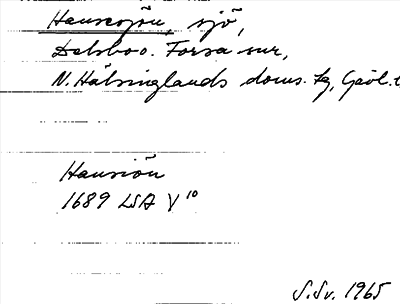 Hansesjön, sjö,
Delsbo o. Forsa snr,
N. Hälsinglands doms. tg, Gävl. l
Hansiön
1689 LSA V 10
S.Sv. 1965